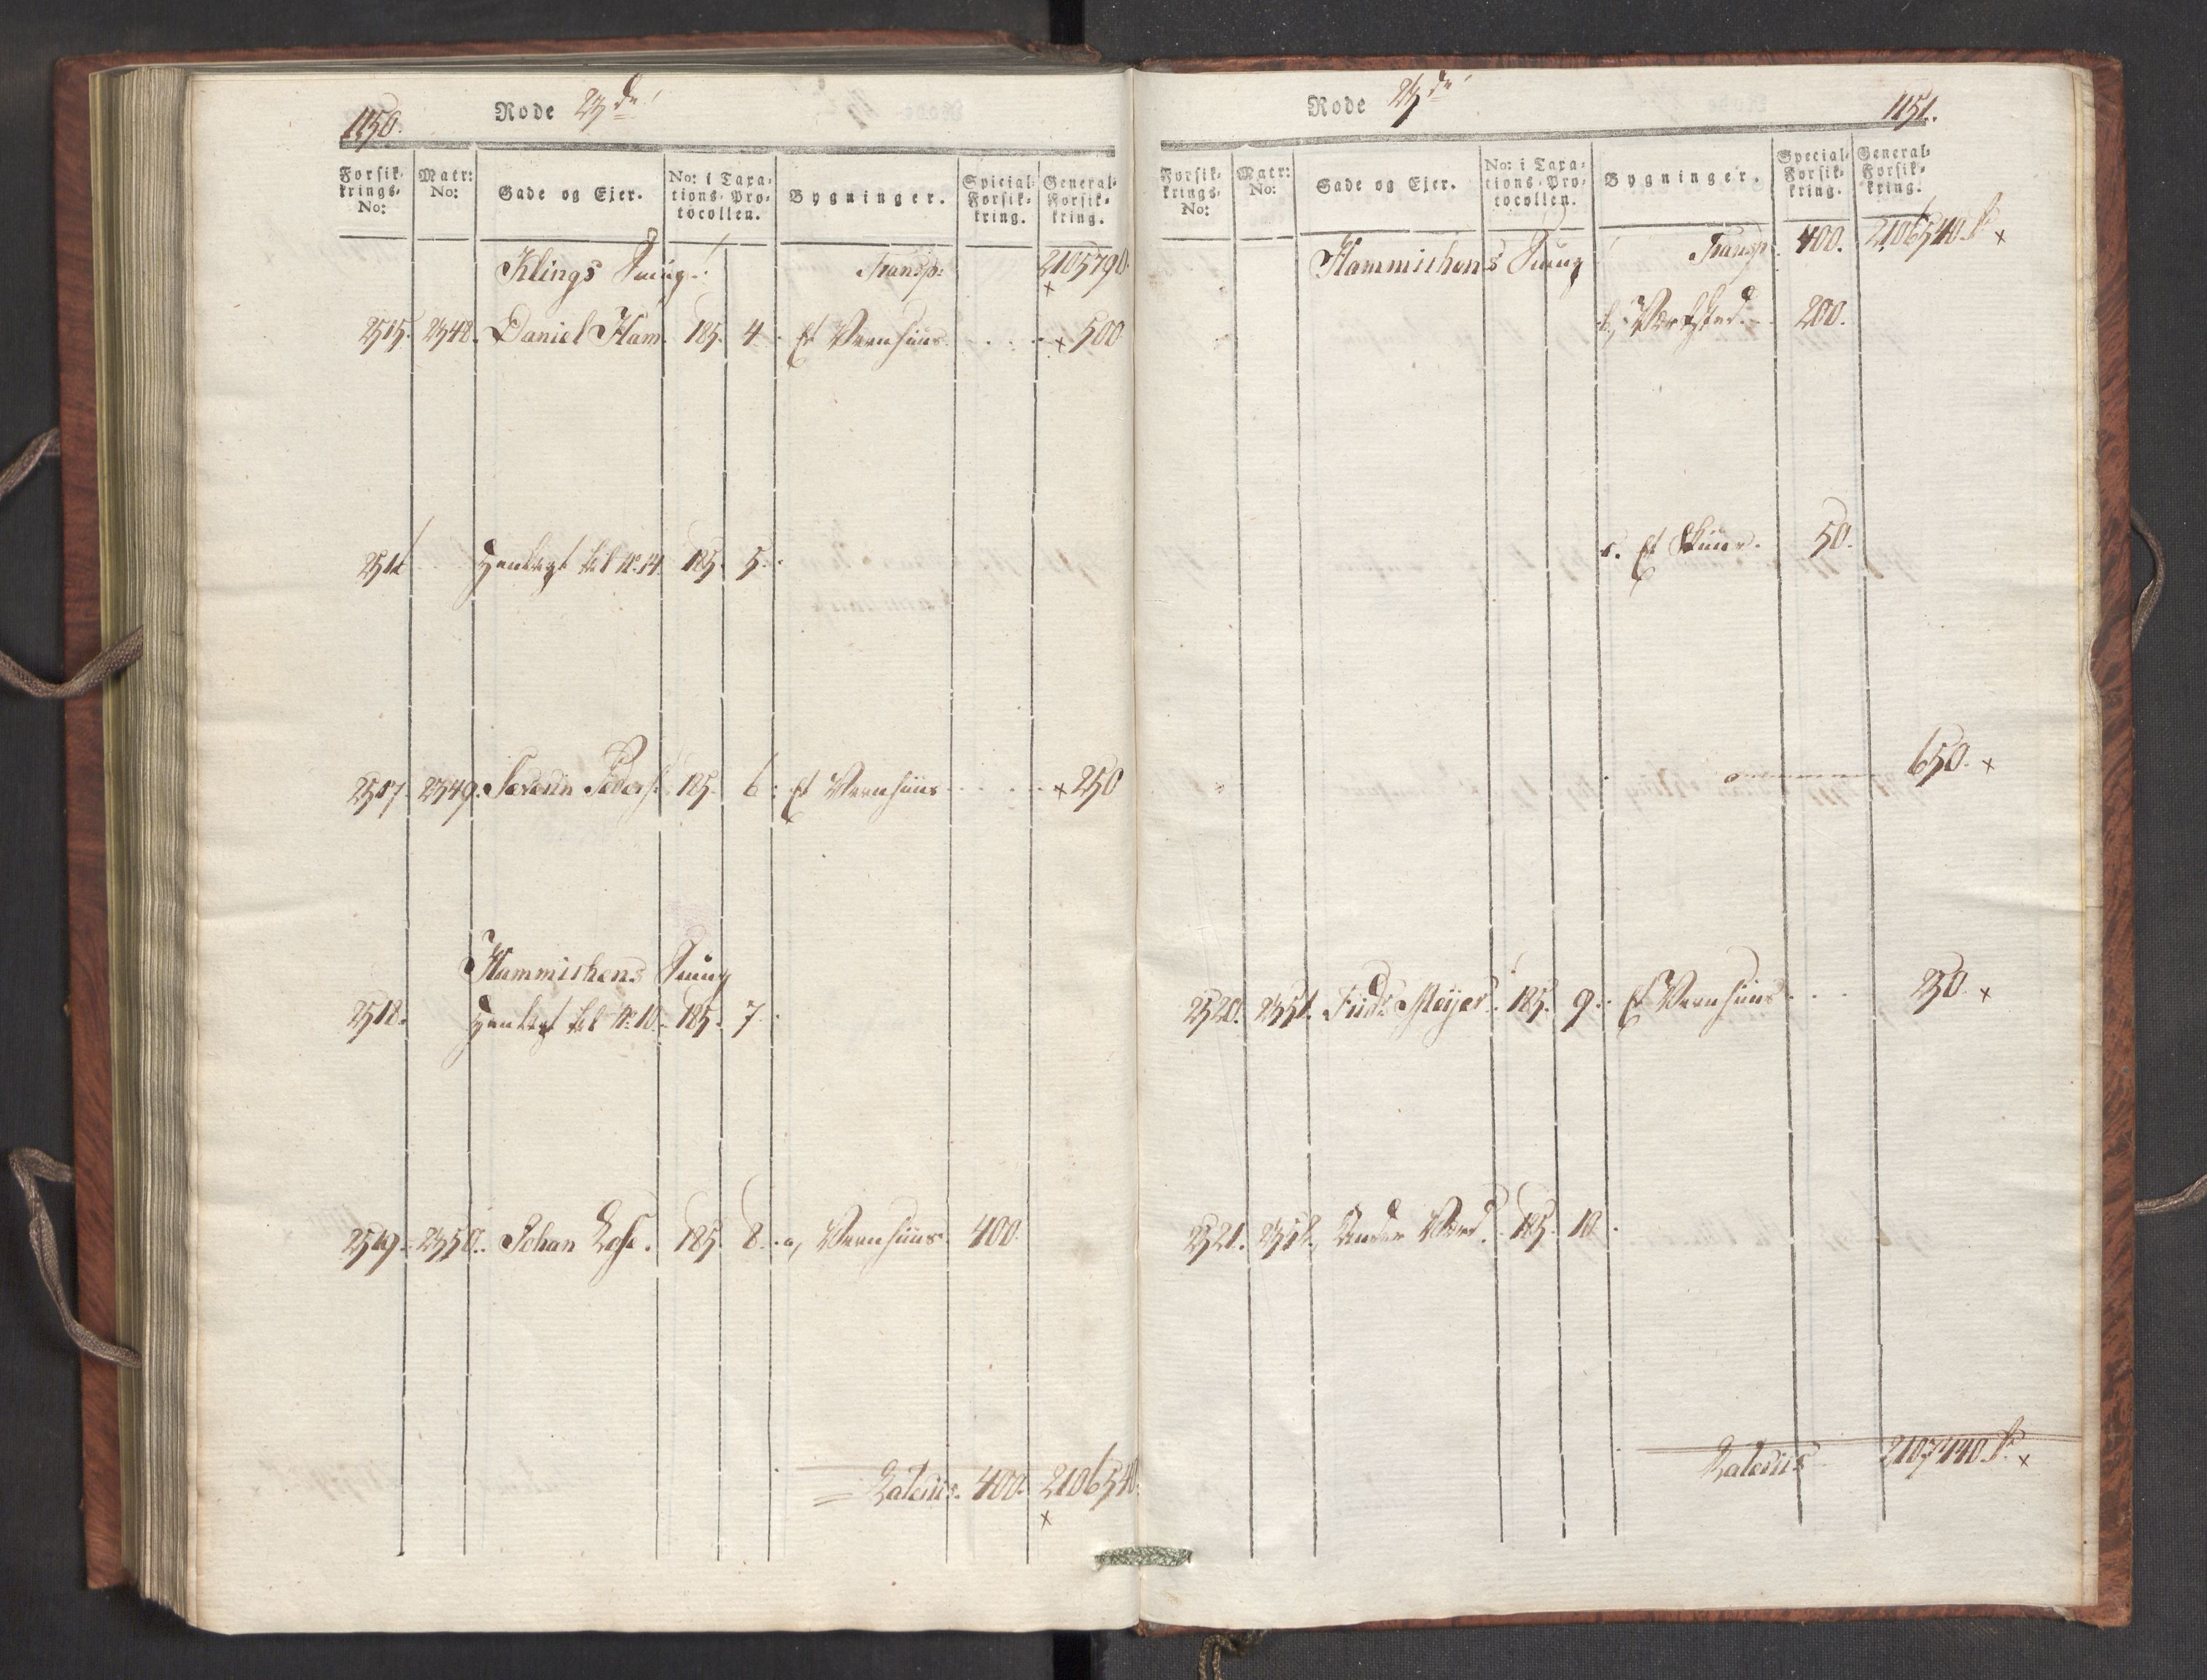 1150.
Rode 23de
Forsik-
krings-
No:
Matr:
No:
Gade og Eier.
No: i Taxa-
tions-Pro-
tocollen.
Bygninger.
Special-
Forsik-
kring.
General-
Forsik-
kring.
Klings Smug. Transp: 2105790.
x
2515. 2348. Daniel Ham. 185. 4. Et Vaanhuus . . . . x 500
2516 Henlagt til No. 14. 185. 5.
2517. 2349. Severin Peders. 185. 6. Et Vaanhuus . . . . x 250
Hammichens Smug
2518. Henlagt til No. 10. 185. 7.
2519. 2350. Johan 185. 8. a, Vaanhuus. 400.
Lateris. 400. 2106540.
x
Rode 23de
1151.
Forsik-
krings-
No:
Matr:
No:
Gade og Eier.
No: i Taxa-
tions-Pro-
tocollen.
Bygninger.
Special-
Forsik-
kring.
General-
Forsik-
kring.
Hammichens Smug Transp. 400. 2106540. x
b, Værksted. 200.
c. Et Skuur. 50.
650. x
2520. 2351. Fridr. Meyer. 185. 9. Et Vaanhuus . . . 250. x
2521. 2352. 185. 10.
Lateris 2107440. x